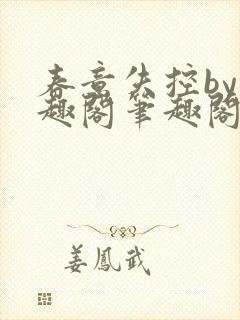 春意失控by
趣阁笔趣阁
姜凤武